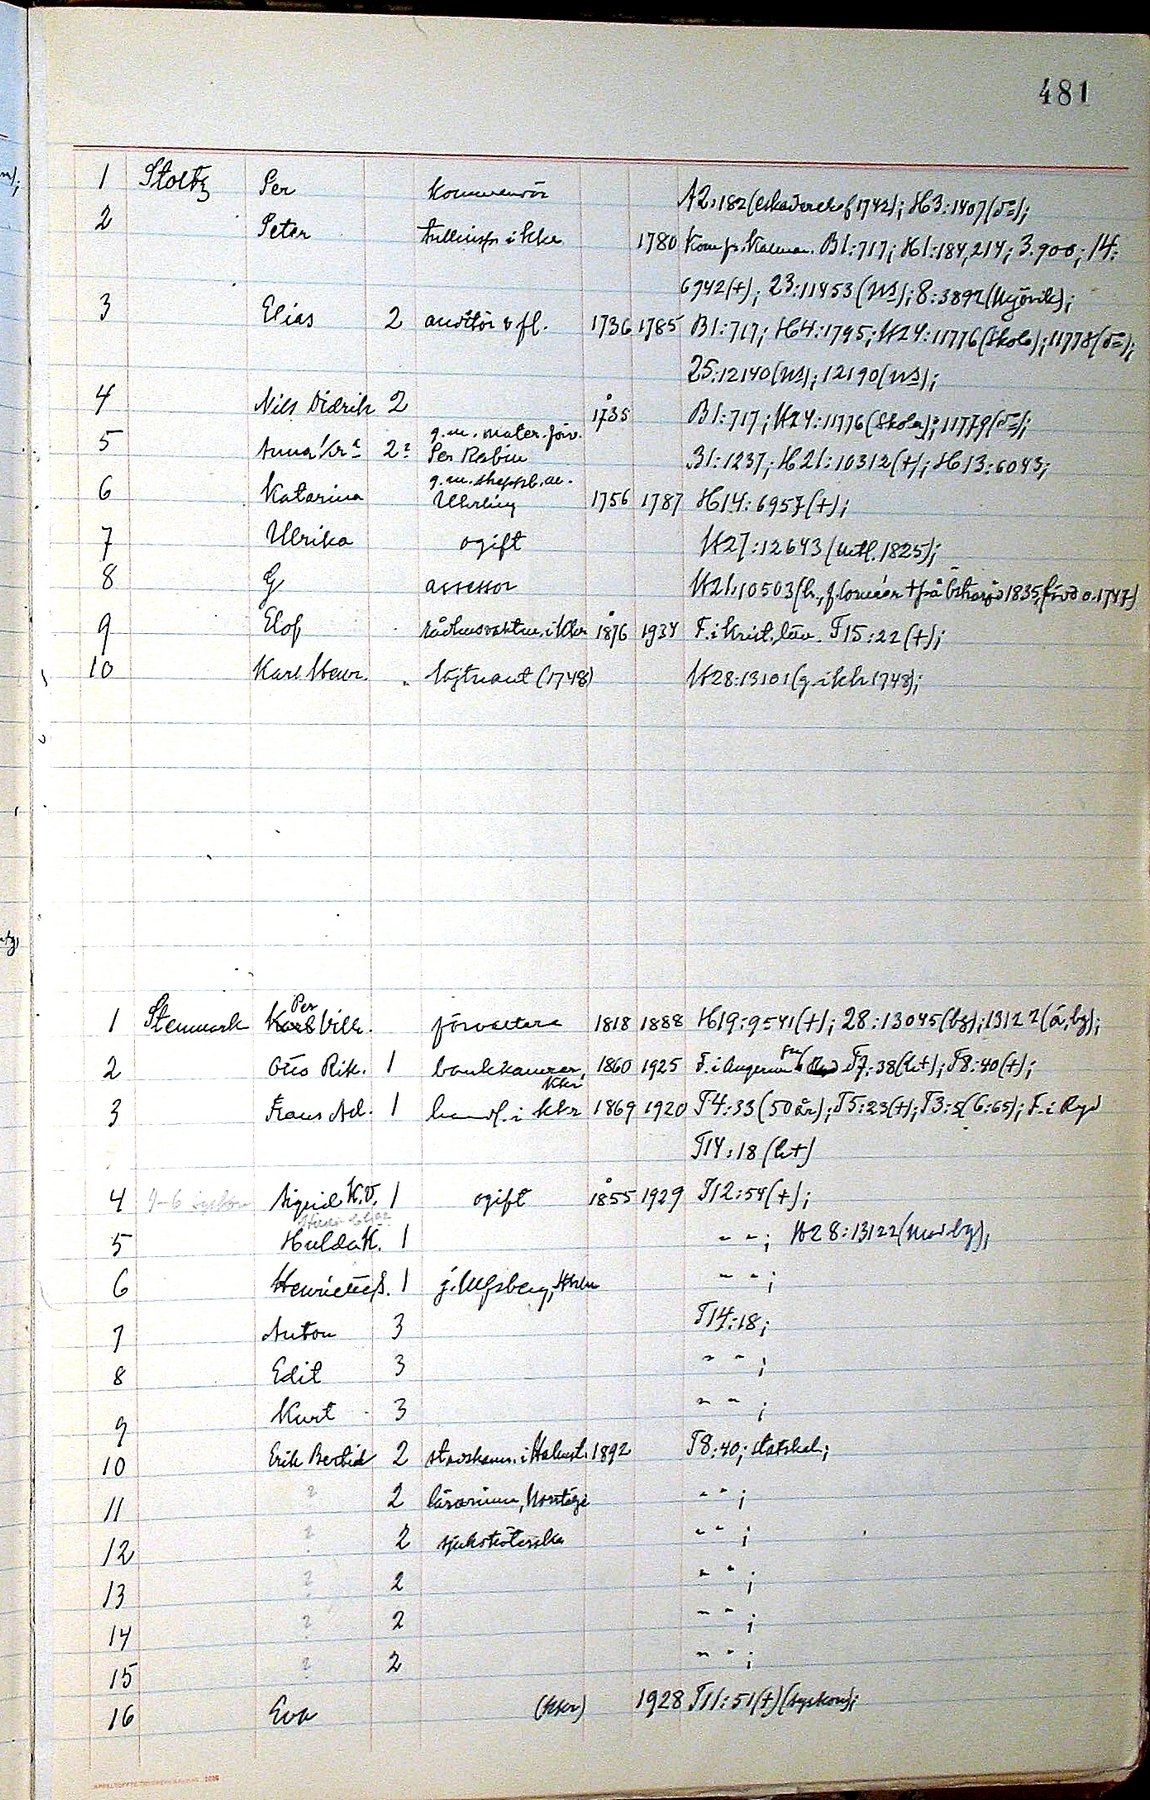 481
1 Stoltz Per A2:182 (eskaderch f 1742); H3:1407 (do);
2 Peter i Kkr 1780 Komp. Kalmar. B1:717; H1:184, 214; 3:900; 14:
6942 (+); 23:11453 (ns); 8:3892
3 Elias 2 auditör o fl. 1736 1785 B1:717; H4:1795; H24:11776 (Skola); 11778 (do);
25:12140 (ns); 12190 (ns);
4 Nils Didrik 2 1735 B1:717; H24:11776 (Skola); 11779 (do);
g. m. mater. förv.
5 Anna 2 Per Robin B1:1237; H21:10312 (+); H13:6043;
g. m. skeppsb. m.
6 Katarina 1756 1787 H14:6957 (+);
7 Ulrika ogift H27:12643 (utfl. 1825);
8 G assessor H21:10503
9 Elof rådhusvaktm. i Kkr 1876 1934 F. i Krist. län. T15:22 (+);
10 Karl Henr. löjtnant (1748) H28:13101 (g i Kkr 1748);
Per
1 Stenmark Karl Vilh. förvaltare 1818 1888 H19:9541 (+); 28:13045 (bg); 13122 (a, bg);
2 Otto Rik. 1 bankkamrer, 1860 1925 F. i T7:38 (h+); T8:40 (+);
Kkr
3 Frans Ad. 1 handl. i Kkr 1869 1920 T4:33 (50 år); T5:23 (+); T3:5 (6:65); F. i Ryd
T14:18 (h+)
4 4-6 syskon Sigrid K.V. 1 ogift 1855 1929 T12:54 (+);
5 Hulda K. 1 " " ; H28:13122 (mor bg);
6 Henriette S. 1 j. Ulfsberg, " " ;
7 Anton 3 T14:18;
8 Edit 3 " " ;
9 Kurt 3 " " ;
10 Erik Bertil 2 i Halmst. 1892 T8:40; statskal.;
11 ? 2 lärarinna, Norrtälje " " ;
12 ? 2 sjuksköterska " " ;
13 ? 2 " " ;
14 ? 2 " " ;
15 ? 2 " " ;
16 Eva (Kkr) 1928 T11:51 (+) (syskon);